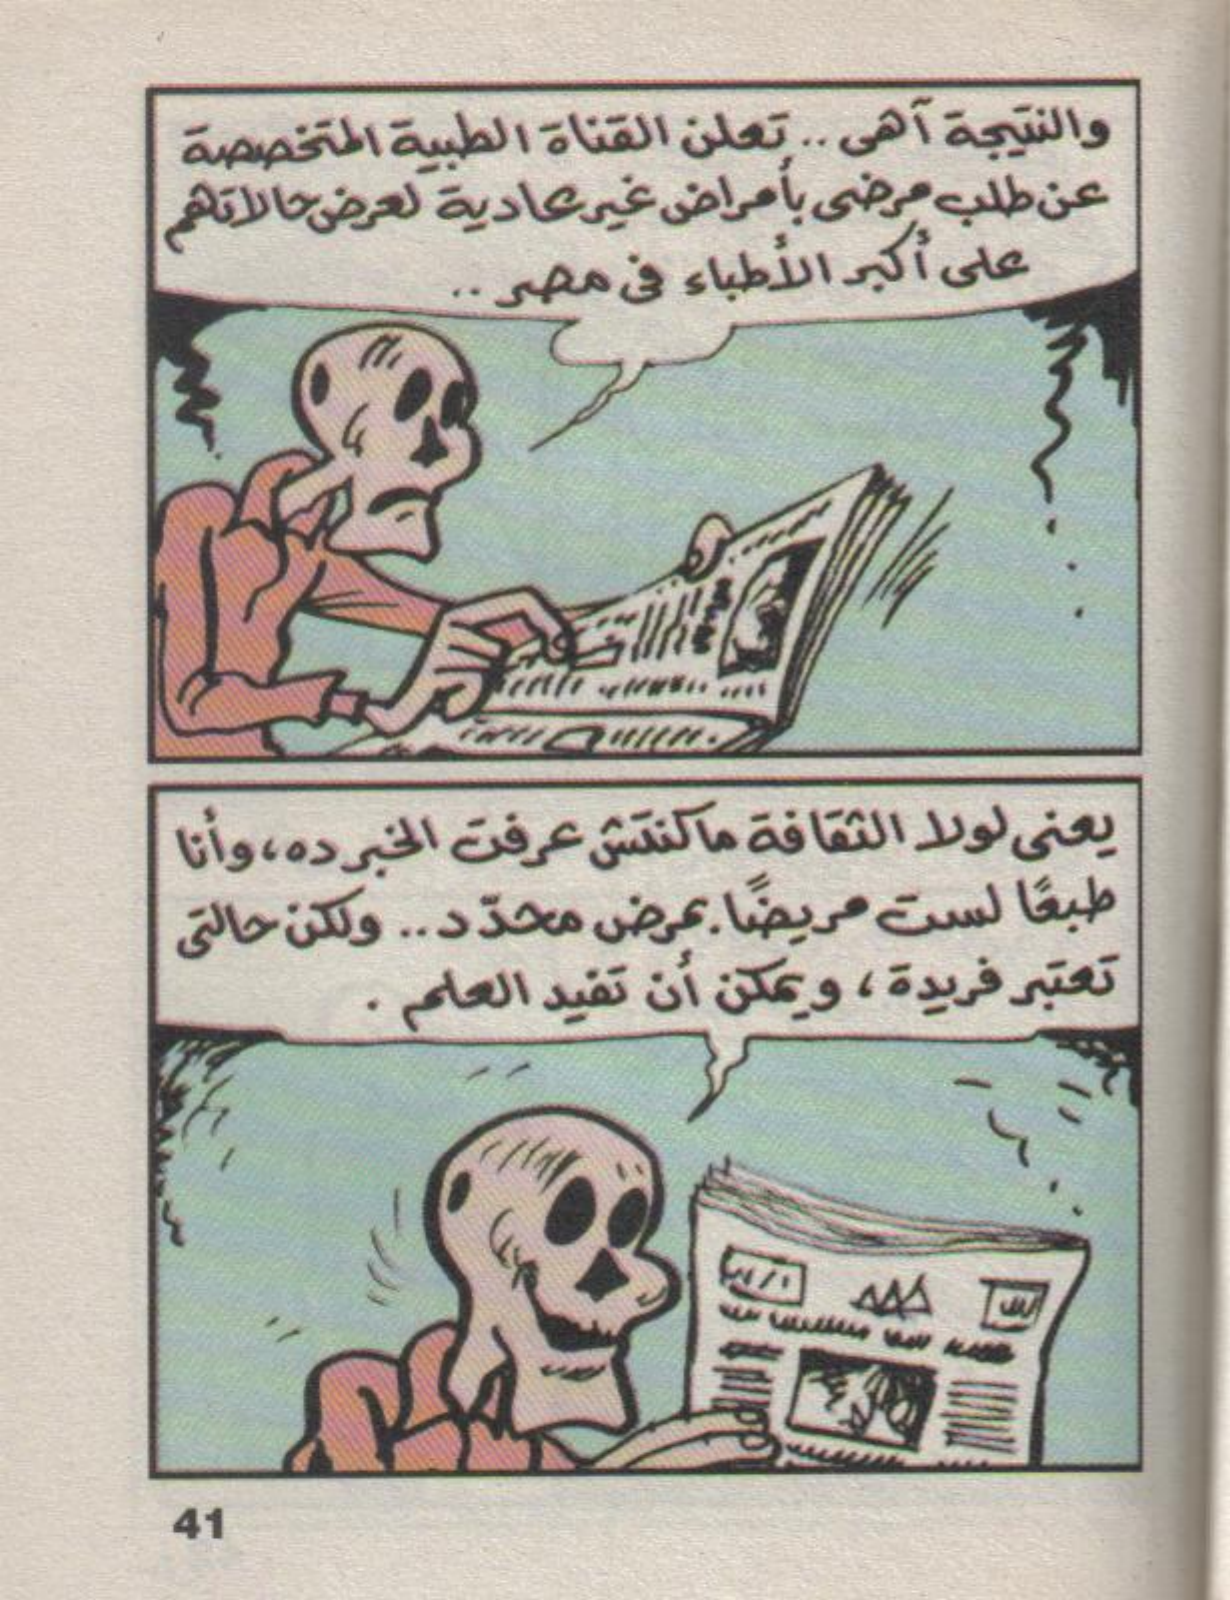 والنتيجة آهى .. تعلن القناة الطبية المتخصصة
عن طلب مرضى بأمراض غير عادية لعرض حالاتهم
على أكبر الأطباء فى مصر ..
يعنى لولا الثقافة ماكنتش عرفت الخبر ده، وأنا
طبعًا لست مريضًا بمرض محدّد .. ولكن حالتى
تعتبر فريدة، ويمكن أن تفيد العلم .
41